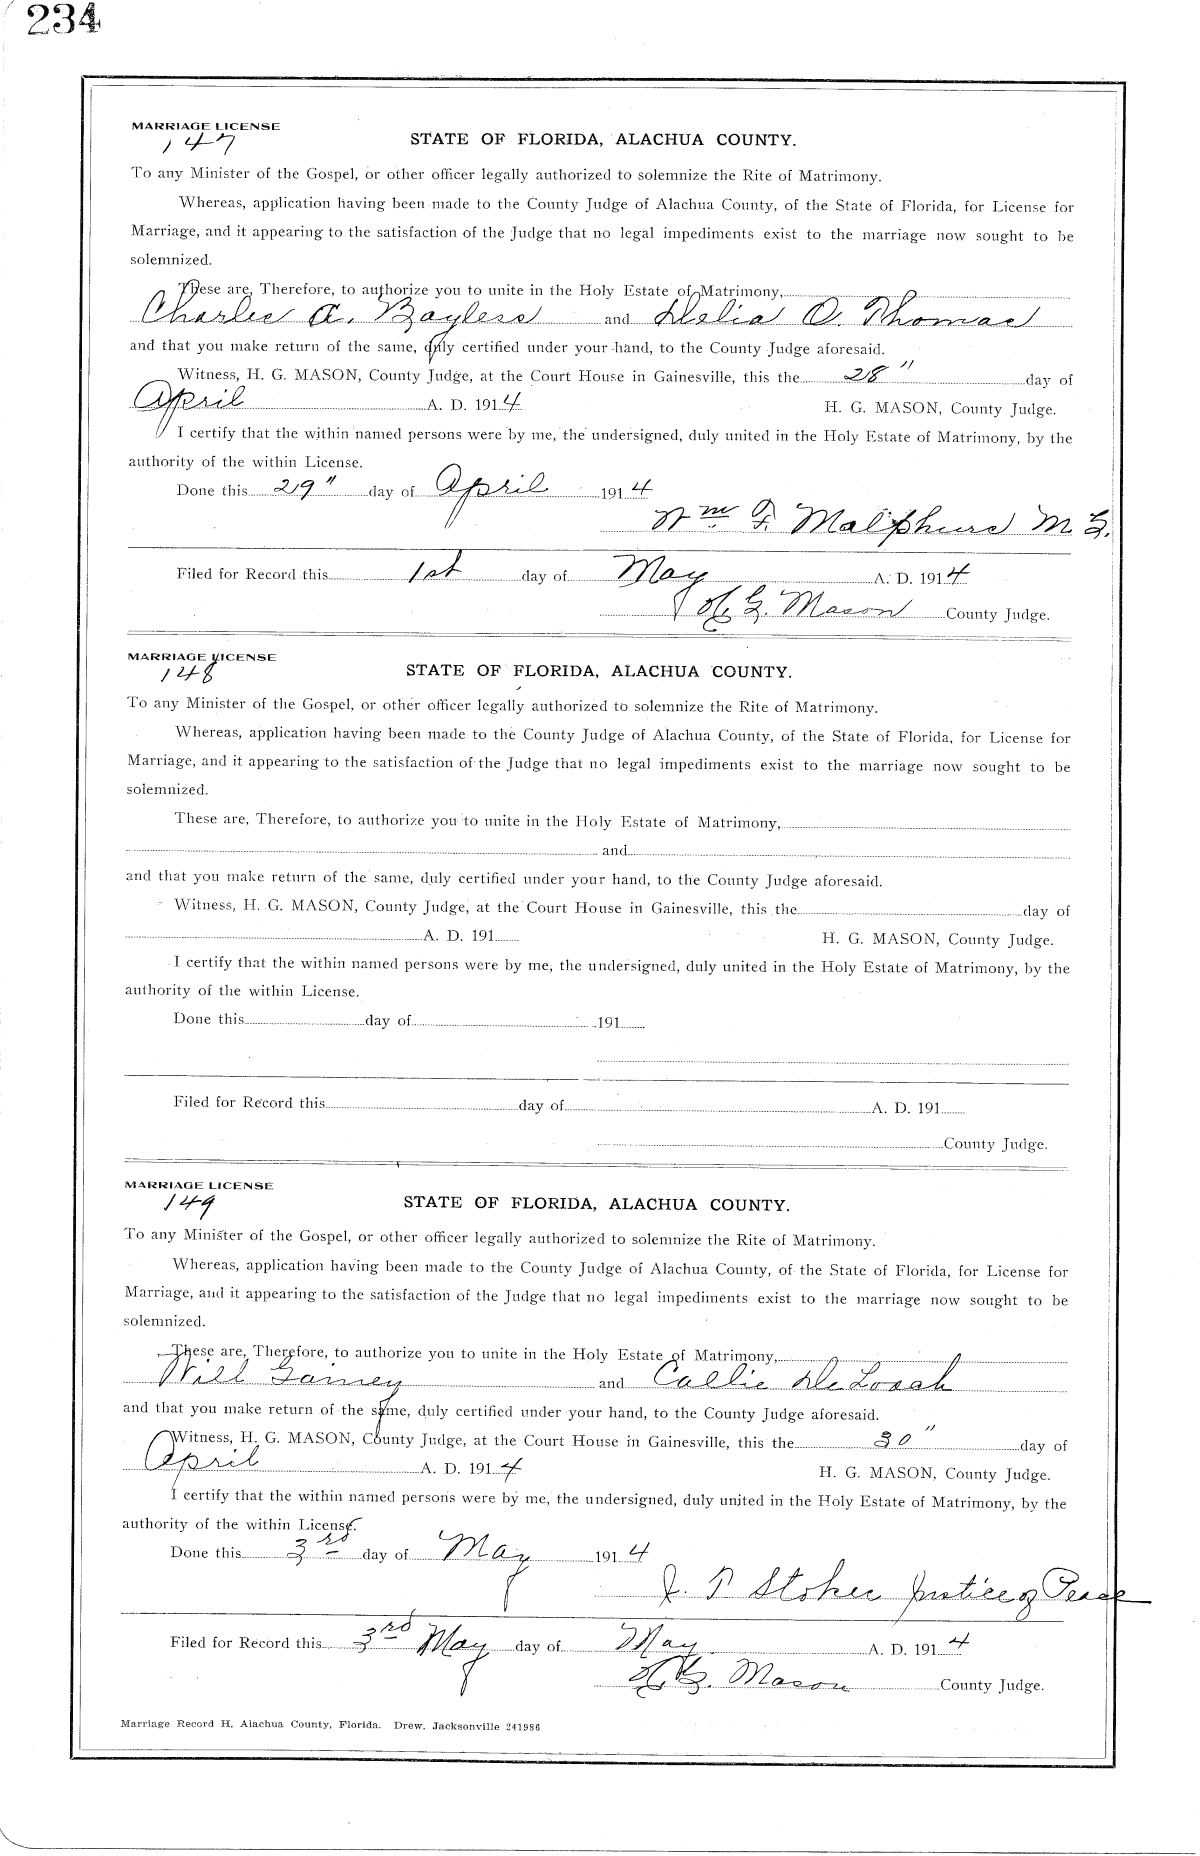 234
MARRIAGE LICENSE
147
STATE OF FLORIDA, ALACHUA COUNTY.
To any Minister of the Gospel, or other officer legally authorized to solemnize the Rite of Matrimony.
Whereas, application having been made to the County Judge of Alachua County, of the State of Florida, for License for
Marriage, and it appearing to the satisfaction of the Judge that no legal impediments exist to the marriage now sought to be
solemnized.
These are, Therefore, to authorize you to unite in the Holy Estate of Matrimony,
Charles A. Bayless and Delia O. Thomas
and that you make return of the same, duly certified under your hand, to the County Judge aforesaid.
Witness, H. G. MASON, County Judge, at the Court House in Gainesville, this the 28" day of
April A. D. 1914 H. G. MASON, County Judge.
I certify that the within named persons were by me, the undersigned, duly united in the Holy Estate of Matrimony, by the
authority of the within License.
Done this 29" day of April 1914
Wm. F. Malphurs M. G.
Filed for Record this 1st day of May A. D. 1914
H. G. Mason County Judge.
MARRIAGE LICENSE
148
STATE OF FLORIDA, ALACHUA COUNTY.
To any Minister of the Gospel, or other officer legally authorized to solemnize the Rite of Matrimony.
Whereas, application having been made to the County Judge of Alachua County, of the State of Florida, for License for
Marriage, and it appearing to the satisfaction of the Judge that no legal impediments exist to the marriage now sought to be
solemnized.
These are, Therefore, to authorize you to unite in the Holy Estate of Matrimony,
and
and that you make return of the same, duly certified under your hand, to the County Judge aforesaid.
Witness, H. G. MASON, County Judge, at the Court House in Gainesville, this the day of
A. D. 191 H. G. MASON, County Judge.
I certify that the within named persons were by me, the undersigned, duly united in the Holy Estate of Matrimony, by the
authority of the within License.
Done this day of 191
Filed for Record this day of A. D. 191
County Judge.
MARRIAGE LICENSE
149
STATE OF FLORIDA, ALACHUA COUNTY.
To any Minister of the Gospel, or other officer legally authorized to solemnize the Rite of Matrimony.
Whereas, application having been made to the County Judge of Alachua County, of the State of Florida, for License for
Marriage, and it appearing to the satisfaction of the Judge that no legal impediments exist to the marriage now sought to be
solemnized.
These are, Therefore, to authorize you to unite in the Holy Estate of Matrimony,
Will Gainey and Callie DeLoach
and that you make return of the same, duly certified under your hand, to the County Judge aforesaid.
Witness, H. G. MASON, County Judge, at the Court House in Gainesville, this the 30" day of
April A. D. 1914 H. G. MASON, County Judge.
I certify that the within named persons were by me, the undersigned, duly united in the Holy Estate of Matrimony, by the
authority of the within License.
Done this 3rd day of May 1914
J. P. Stokes Justice of Peace
Filed for Record this 3rd May day of May A. D. 1914
H. G. Mason County Judge.
Marriage Record H, Alachua County, Florida. Drew, Jacksonville 241986